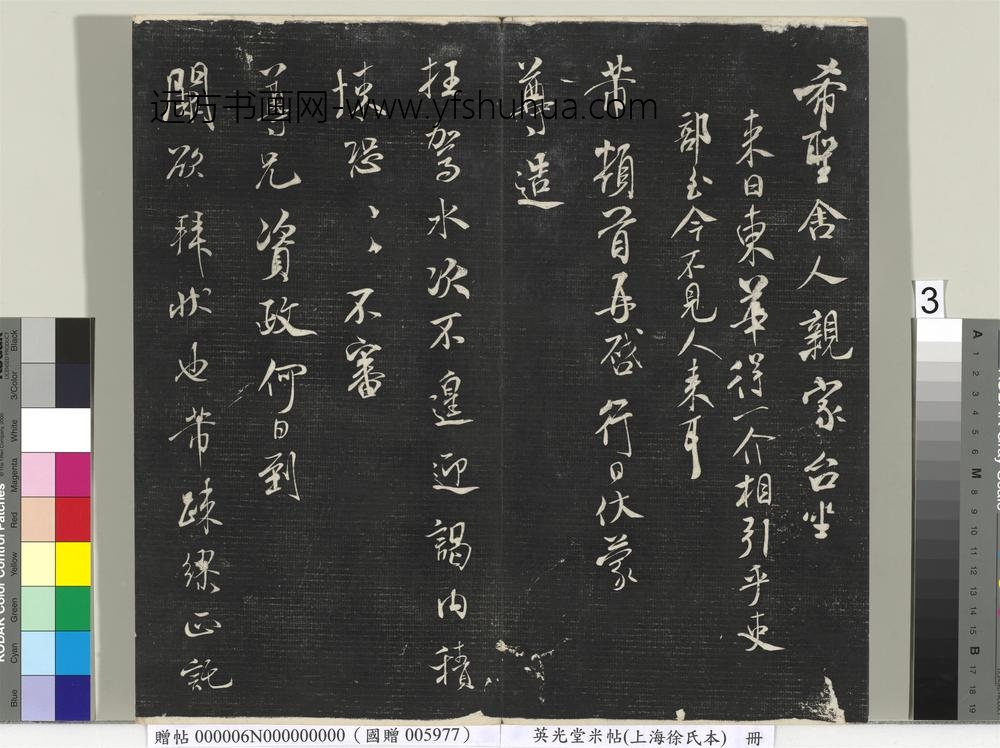 希聖舍人親家台坐
来日東華得一介相引乎吏
部書今不見人来耳
芾頓首再啓行日伏蒙
尊造
枉駕水次不遑迎謁内積
悚恐〻〻不審
尊兄資政何日到
闕欲拜狀也芾疎繆正託
远方书画网-www.yfshuhua.com
3
贈帖 000006N000000000（國贈 005977） 英光堂米帖(上海徐氏本) 冊
KODAK Color Control Patches
Blue Cyan Green Yellow Red Magenta White 3/Color Black
A 1 2 3 4 5 6 M 8 9 10 11 12 13 14 15 B 17 18 19